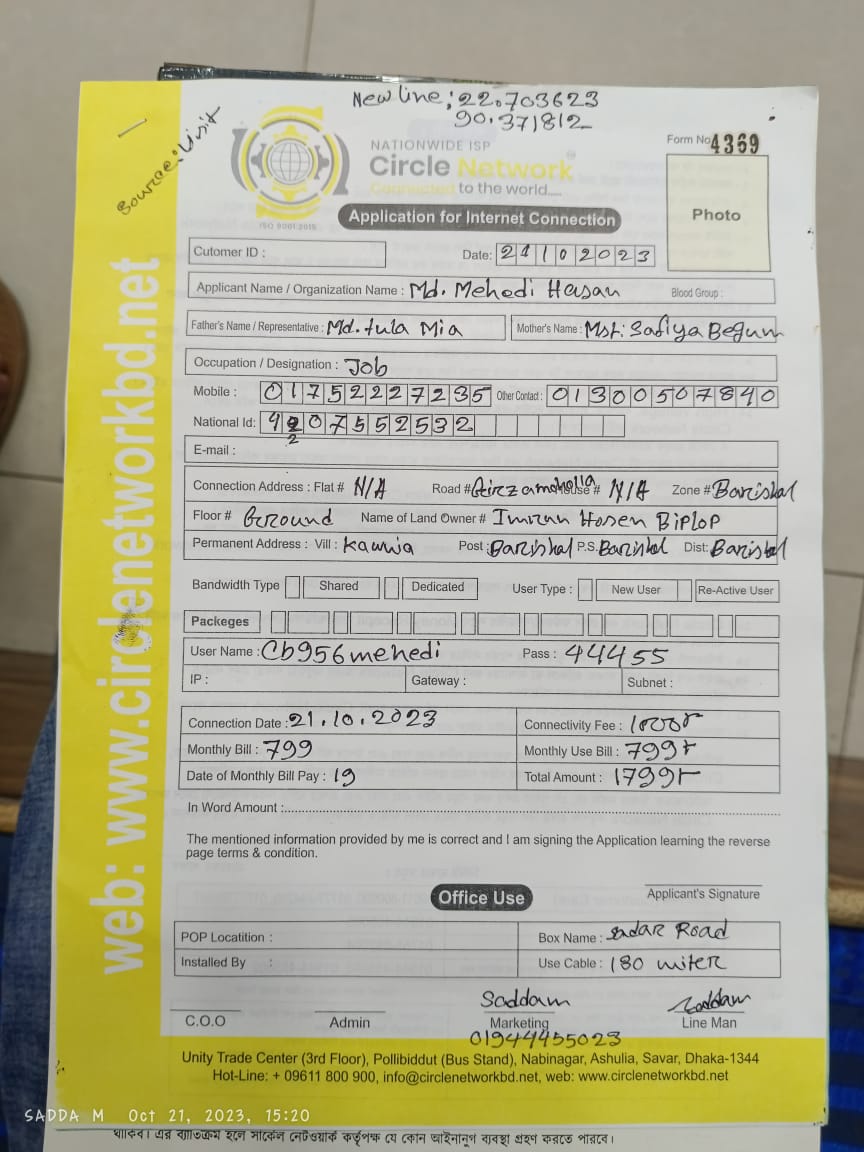 New line: 22.703623
90.371812
Source: Visit
NATIONWIDE ISP
Circle Network
Connected to the world....
ISO 9001:2015
Form No 4369
Photo
Application for Internet Connection
Cutomer ID :
Date: 21102023
Applicant Name / Organization Name : Md. Mehedi Hasan Blood Group :
Father's Name / Representative : Md. tula Mia Mother's Name : Mst: Safiya Begum
Occupation / Designation : Job
Mobile : 01752227235 Other Contact : 01300507840
National Id: 4207552532
E-mail :
Connection Address : Flat # N/A Road # Girzamoholla House # N/A Zone # Barishal
Floor # Ground Name of Land Owner # Imran Hosen BiPlop
Permanent Address : Vill : Kawnia Post : Barishal P.S. Barishal Dist: Barishal
Bandwidth Type Shared Dedicated User Type : New User Re-Active User
Packeges
User Name : Cb956mehedi Pass : 44455
IP : Gateway : Subnet :
Connection Date : 21.10.2023 Connectivity Fee : 1000৳
Monthly Bill : 799 Monthly Use Bill : 799৳
Date of Monthly Bill Pay : 19 Total Amount : 1799৳
In Word Amount :
The mentioned information provided by me is correct and I am signing the Application learning the reverse
page terms & condition.
Applicant's Signature
Office Use
POP Locatition : Box Name : Sadar Road
Installed By : Use Cable : 180 miter
Saddam Saddam
C.O.O Admin Marketing Line Man
01944455023
Unity Trade Center (3rd Floor), Pollibiddut (Bus Stand), Nabinagar, Ashulia, Savar, Dhaka-1344
Hot-Line: + 09611 800 900, info@circlenetworkbd.net, web: www.circlenetworkbd.net
web: www.circlenetworkbd.net
SADDA M Oct 21, 2023, 15:20
থাকিব। এর ব্যতিক্রম হলে সার্কেল নেটওয়ার্ক কর্তৃপক্ষ যে কোন আইনানুগ ব্যবস্থা গ্রহণ করতে পারবে।